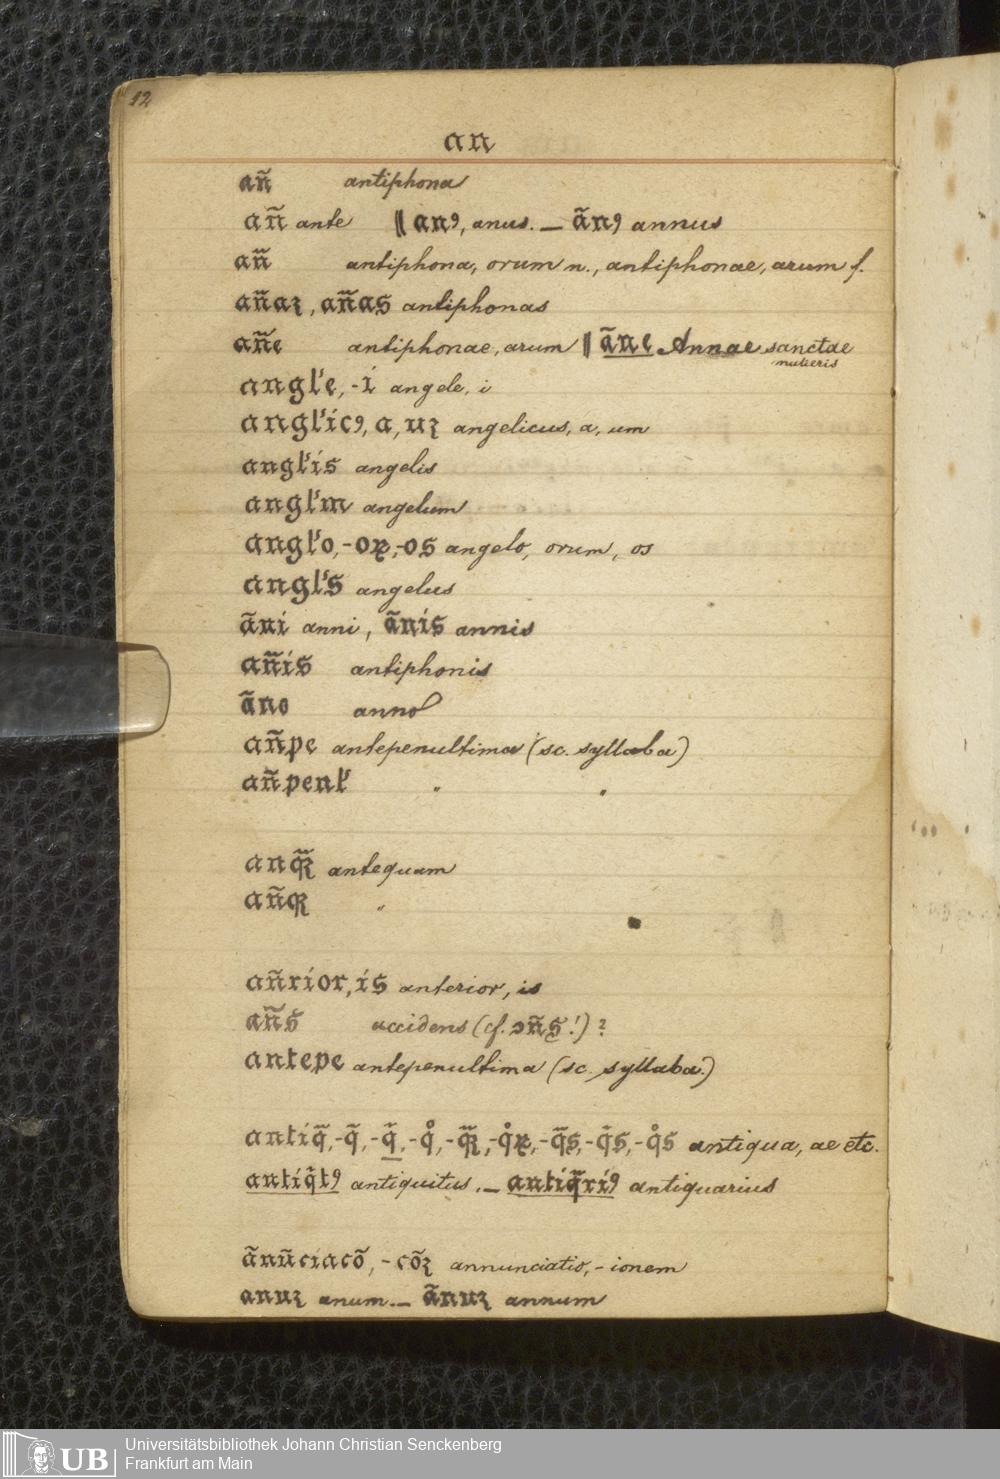 12
an
añ antiphona
añ ante || anꝯ, anus. — ãnꝯ annus
añ antiphona, orum n., antiphonae, arum f.
añaz, añas antiphonas
añe antiphonae, arum || ãne Annae sanctae
mulieris
angl'e, -i angele, i
angl'icꝯ, a, uz angelicus, a, um
angl'is angelis
angl'm angelum
angl'o, -oꝝ, -os angelo, orum, os
angl's angelus
ãni anni, ãnis annis
añis antiphonis
ãno anno
añpe antepenultima (sc. syllaba)
añpenl' " "
anq̃z antequam
añqz "
añrior, is anterior, is
añs accidens (cf. ɔñs!) ?
antepe antepenultima (sc. syllaba.)
antiq̃, -q̃, -q̃, -q̊, -q̃z, -q̊ꝝ, -q̃s, -q̃s, -q̊s antiqua, ae etc.
antiq̃tꝯ antiquitus. — antiq̃riꝯ antiquarius
ãnũciacõ, -cõz annunciatio, -ionem
anuz anum. — ãnuz annum
UB
Universitätsbibliothek Johann Christian Senckenberg
Frankfurt am Main